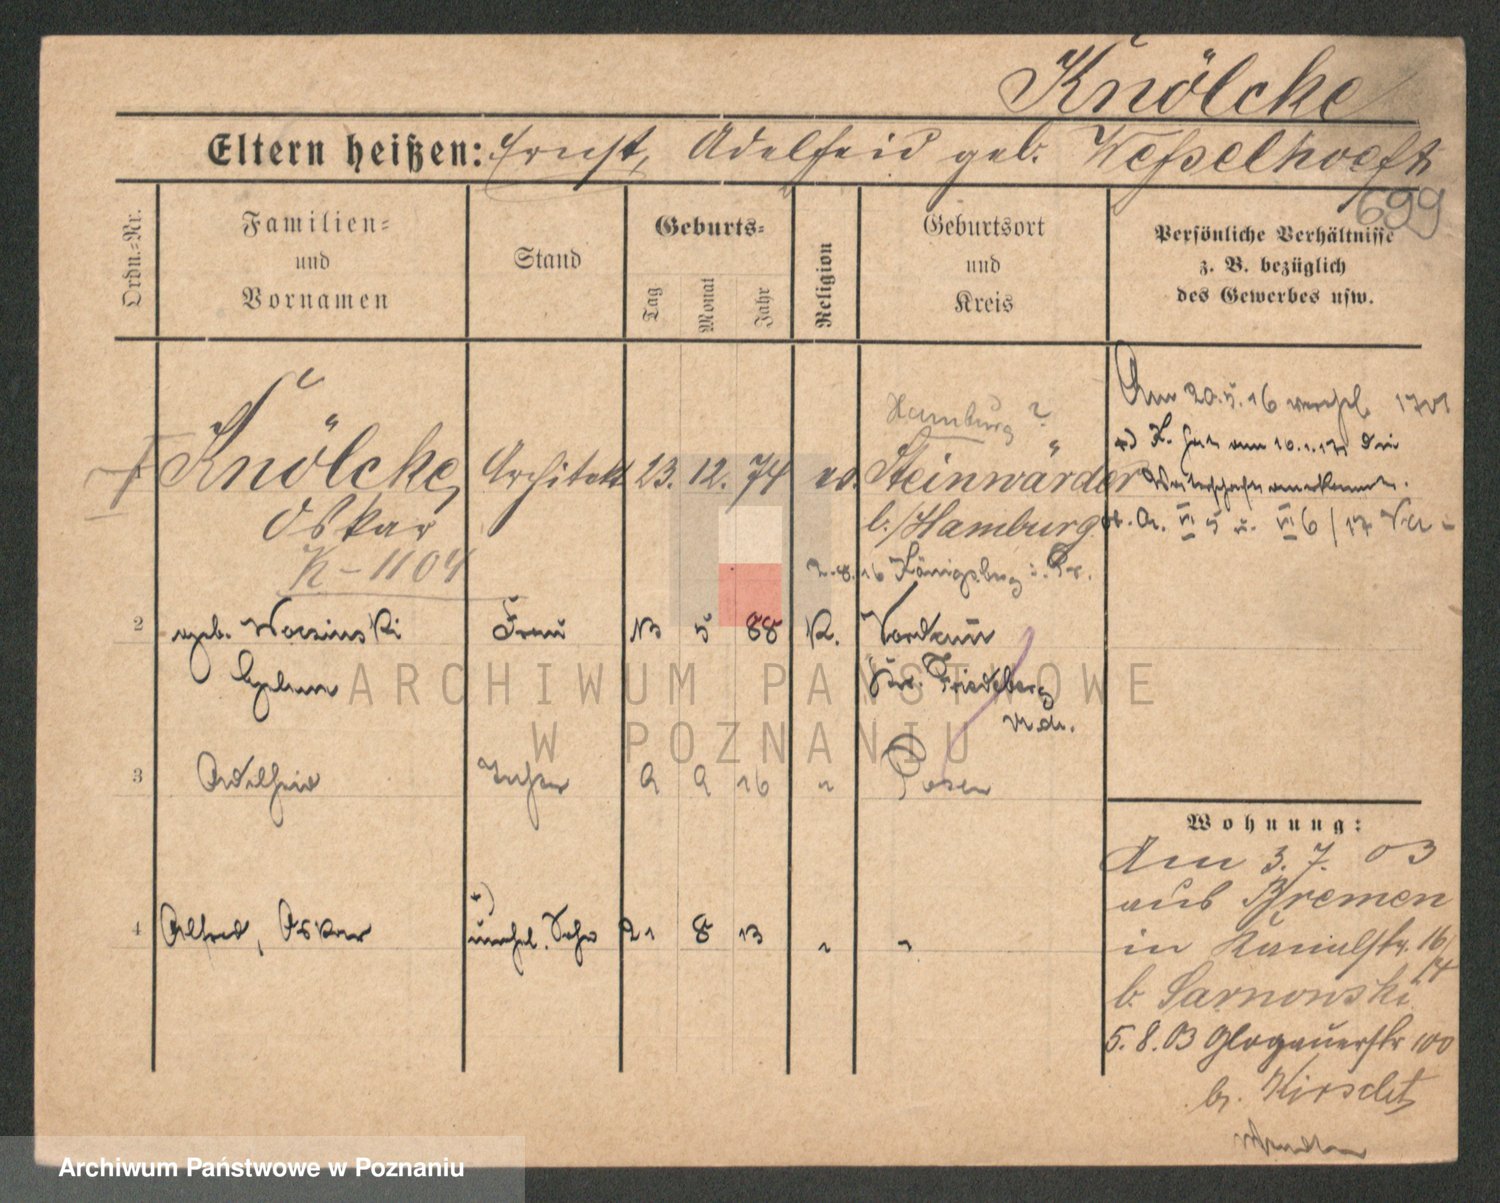 Knölcke
Eltern heißen: Ernst, Adelheid geb. Wesselhoeft
699
Ordn.-Nr.
Familien-
und
Vornamen
Stand
Geburts-
Tag
Monat
Jahr
Religion
Geburtsort
und
Kreis
Persönliche Verhältnisse
z. B. bezüglich
des Gewerbes usw.
Knölcke, Architekt 23. 12. 74 ev.
Oskar
K-1104
Hamburg ?
Steinwärder
b./Hamburg
2.8.16 Königsberg i. Pr.
Am 20.5.16
K. hat am 10.1.17 die
Vaterschaft anerkannt.
2 geb. Frau 13 5 88 K.
Kr. Friedeberg
N.M.
3 Adelheid Tochter 9 9 16 " Posen
4 Alfred, Oskar unehel. Sohn 21 8 13 " "
Wohnung:
Am 3.7.03
aus Bremen
in Kanalstr. 16/
b. Sarnowski
5.8.03 Glogauerstr 100
b.
ARCHIWUM PAŃSTWOWE
W POZNANIU
Archiwum Państwowe w Poznaniu